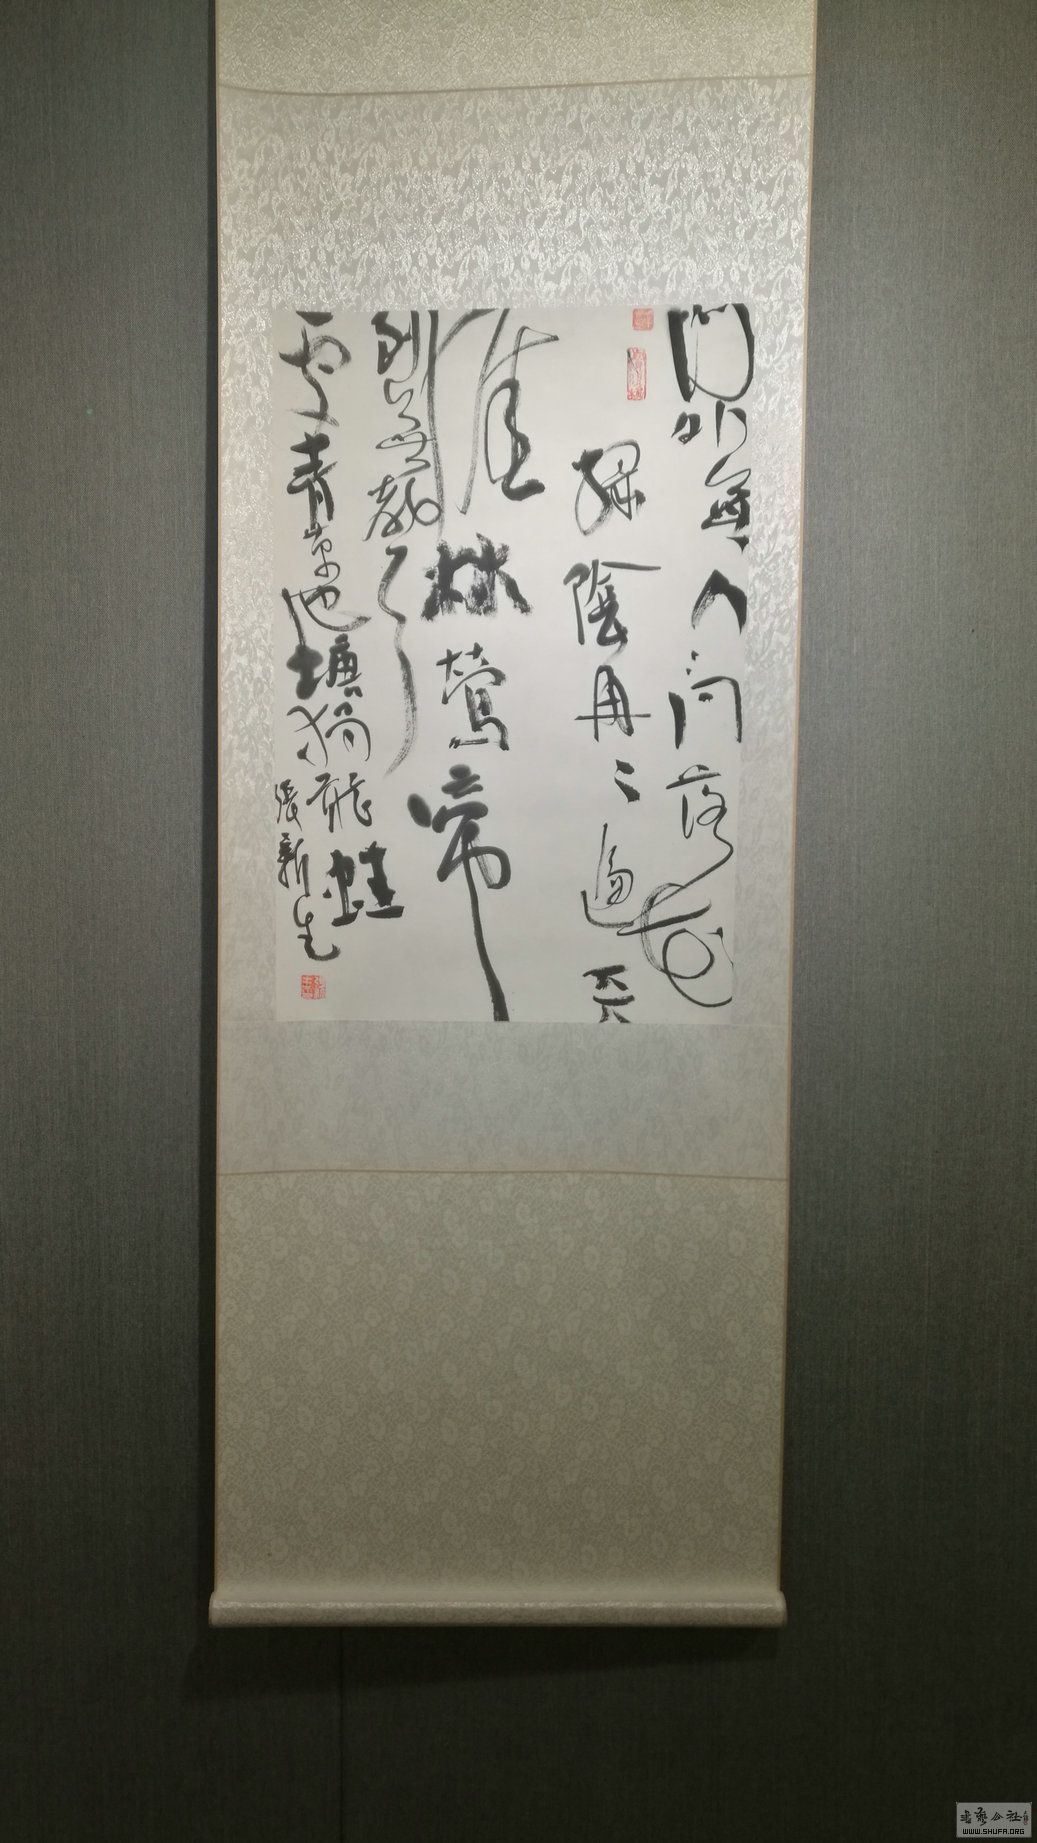 門外無人問落花
綠陰冉〻遍天
涯林鶯啼
到無聲
處青草池塘獨聽蛙
張新生
书艺公社
WWW.SHUFA.ORG